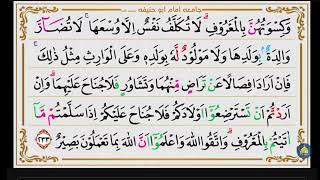 جامعه امام ابو حنیفه
وَكِسْوَتُهُنَّ بِالْمَعْرُوْفِ ؕ لَا تُكَلَّفُ نَفْسٌ اِلَّا وُسْعَهَا ۚ لَا تُضَآرَّ
وَالِدَةٌۢ بِوَلَدِهَا وَلَا مَوْلُوْدٌ لَّهٗ بِوَلَدِهٖ ۗ وَعَلَى الْوَارِثِ مِثْلُ ذٰلِكَ ۚ
فَاِنْ اَرَادَا فِصَالًا عَنْ تَرَاضٍ مِّنْهُمَا وَتَشَاوُرٍ فَلَا جُنَاحَ عَلَيْهِمَا ؕ وَاِنْ
اَرَدْتُّمْ اَنْ تَسْتَرْضِعُوْٓا اَوْلَادَكُمْ فَلَا جُنَاحَ عَلَيْكُمْ اِذَا سَلَّمْتُمْ مَّآ
اٰتَيْتُمْ بِالْمَعْرُوْفِ ؕ وَاتَّقُوا اللّٰهَ وَاعْلَمُوْٓا اَنَّ اللّٰهَ بِمَا تَعْمَلُوْنَ بَصِيْرٌ ﴿۲۳۳﴾